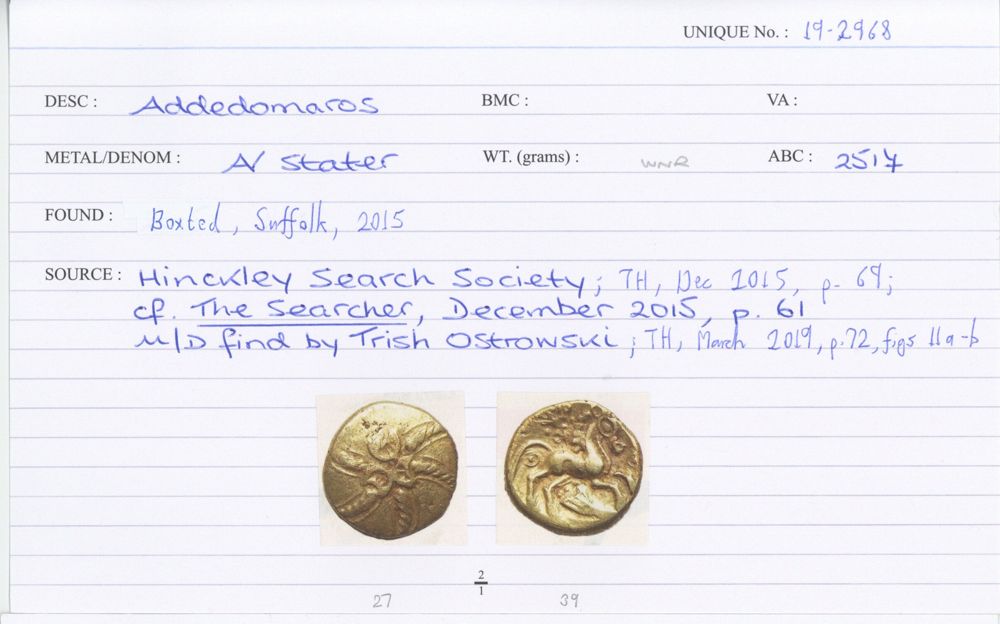 UNIQUE No. : 19-2968
DESC : Addedomaros BMC : VA :
METAL/DENOM : A/ Stater WT. (grams) : WNR ABC : 2517
FOUND : Boxted, Suffolk, 2015
SOURCE : Hinckley Search Society; TH, Dec 2015, p. 69;
cf. The Searcher, December 2015, p. 61
M/D find by Trish Ostrowski; TH, March 2019, p.72, figs 11a-b
2
1
27 39